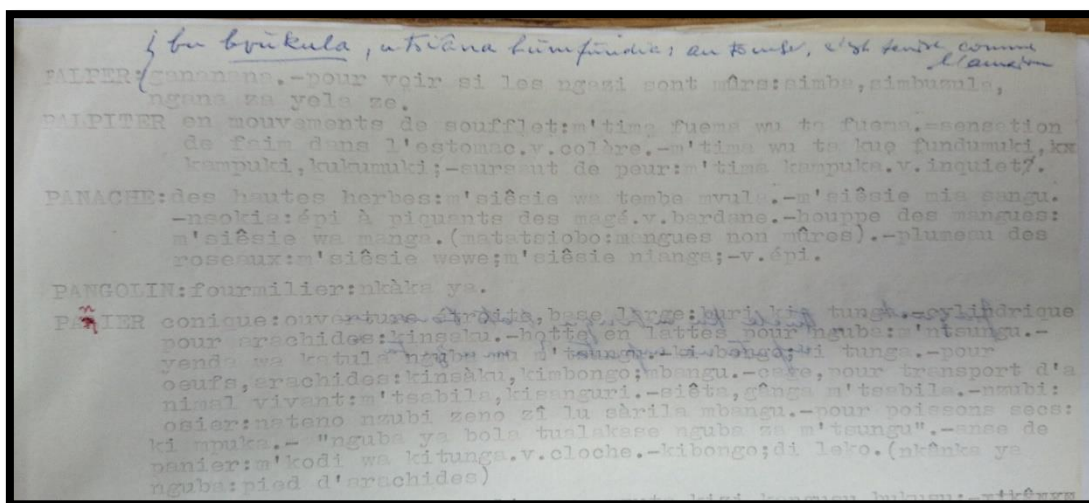 bu bvûkula, utsiâna bumfundia: au toucher, c'est tendre, comme
l'amadou
PALPER:(gananana.-pour voir si les ngazi sont mûrs:simba,simbuzula,
ngana za yela ze.
PALPITER en mouvements de soufflet:m'tima fuema wu ta fuema.-sensation
de faim dans l'estomac.v.colère.-m'tima wu ta kue fundumuki,kx
kampuki,kukumuki;-sursaut de peur:m'tima kampuka.v.inquiet.
PANACHE:des hautes herbes:m'siêsie wa tembe mvula.-m'siêsie mia sangu.
-nsokia:épi à piquants des magé.v.bardane.-houppe des mangues:
m'siêsie wa manga.(matatsiobo:mangues non mûres).-plumeau des
roseaux:m'siêsie wewe;m'siêsie nianga;-v.épi.
PANGOLIN:fourmilier:nkàka ya.
PANIER conique:ouverture étroite,base large: ki tunga.-cylindrique
pour arachides:kinsaku.-hotte en lattes pour nguba:m'ntsungu.-
yenda wa katula nguba mu m'tsungu.-ki bongo;ki tunga.-pour
oeufs,arachides:kinsàku,kimbongo;mbangu.-cage,pour transport d'a
nimal vivant:m'tsabila,kisanguri.-siêta,gânga m'tsabila.-nzubi:
osier:nateno nzubi zeno zî lu sàrila mbangu.-pour poissons secs:
ki mpuka.- "nguba ya bola tualakase nguba za m'tsungu".-anse de
panier:m'kodi wa kitunga.v.cloche.-kibongo;di leko.(nkânka ya
nguba:pied d'arachides)